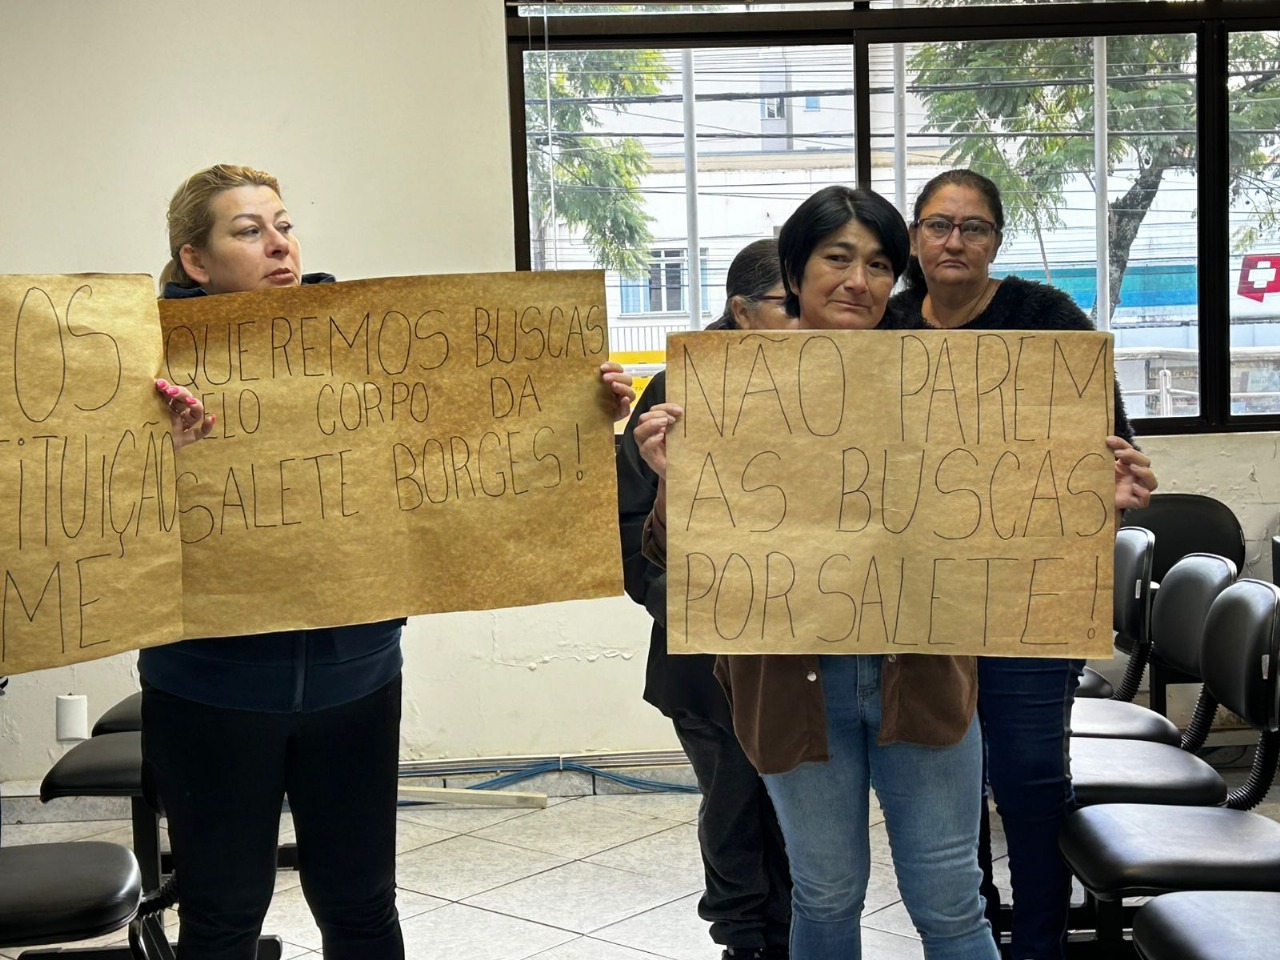 OS
TITUIÇÃO
ME
QUEREMOS BUSCAS
PELO CORPO DA
SALETE BORGES!
NÃO PAREM
AS BUSCAS
POR SALETE!